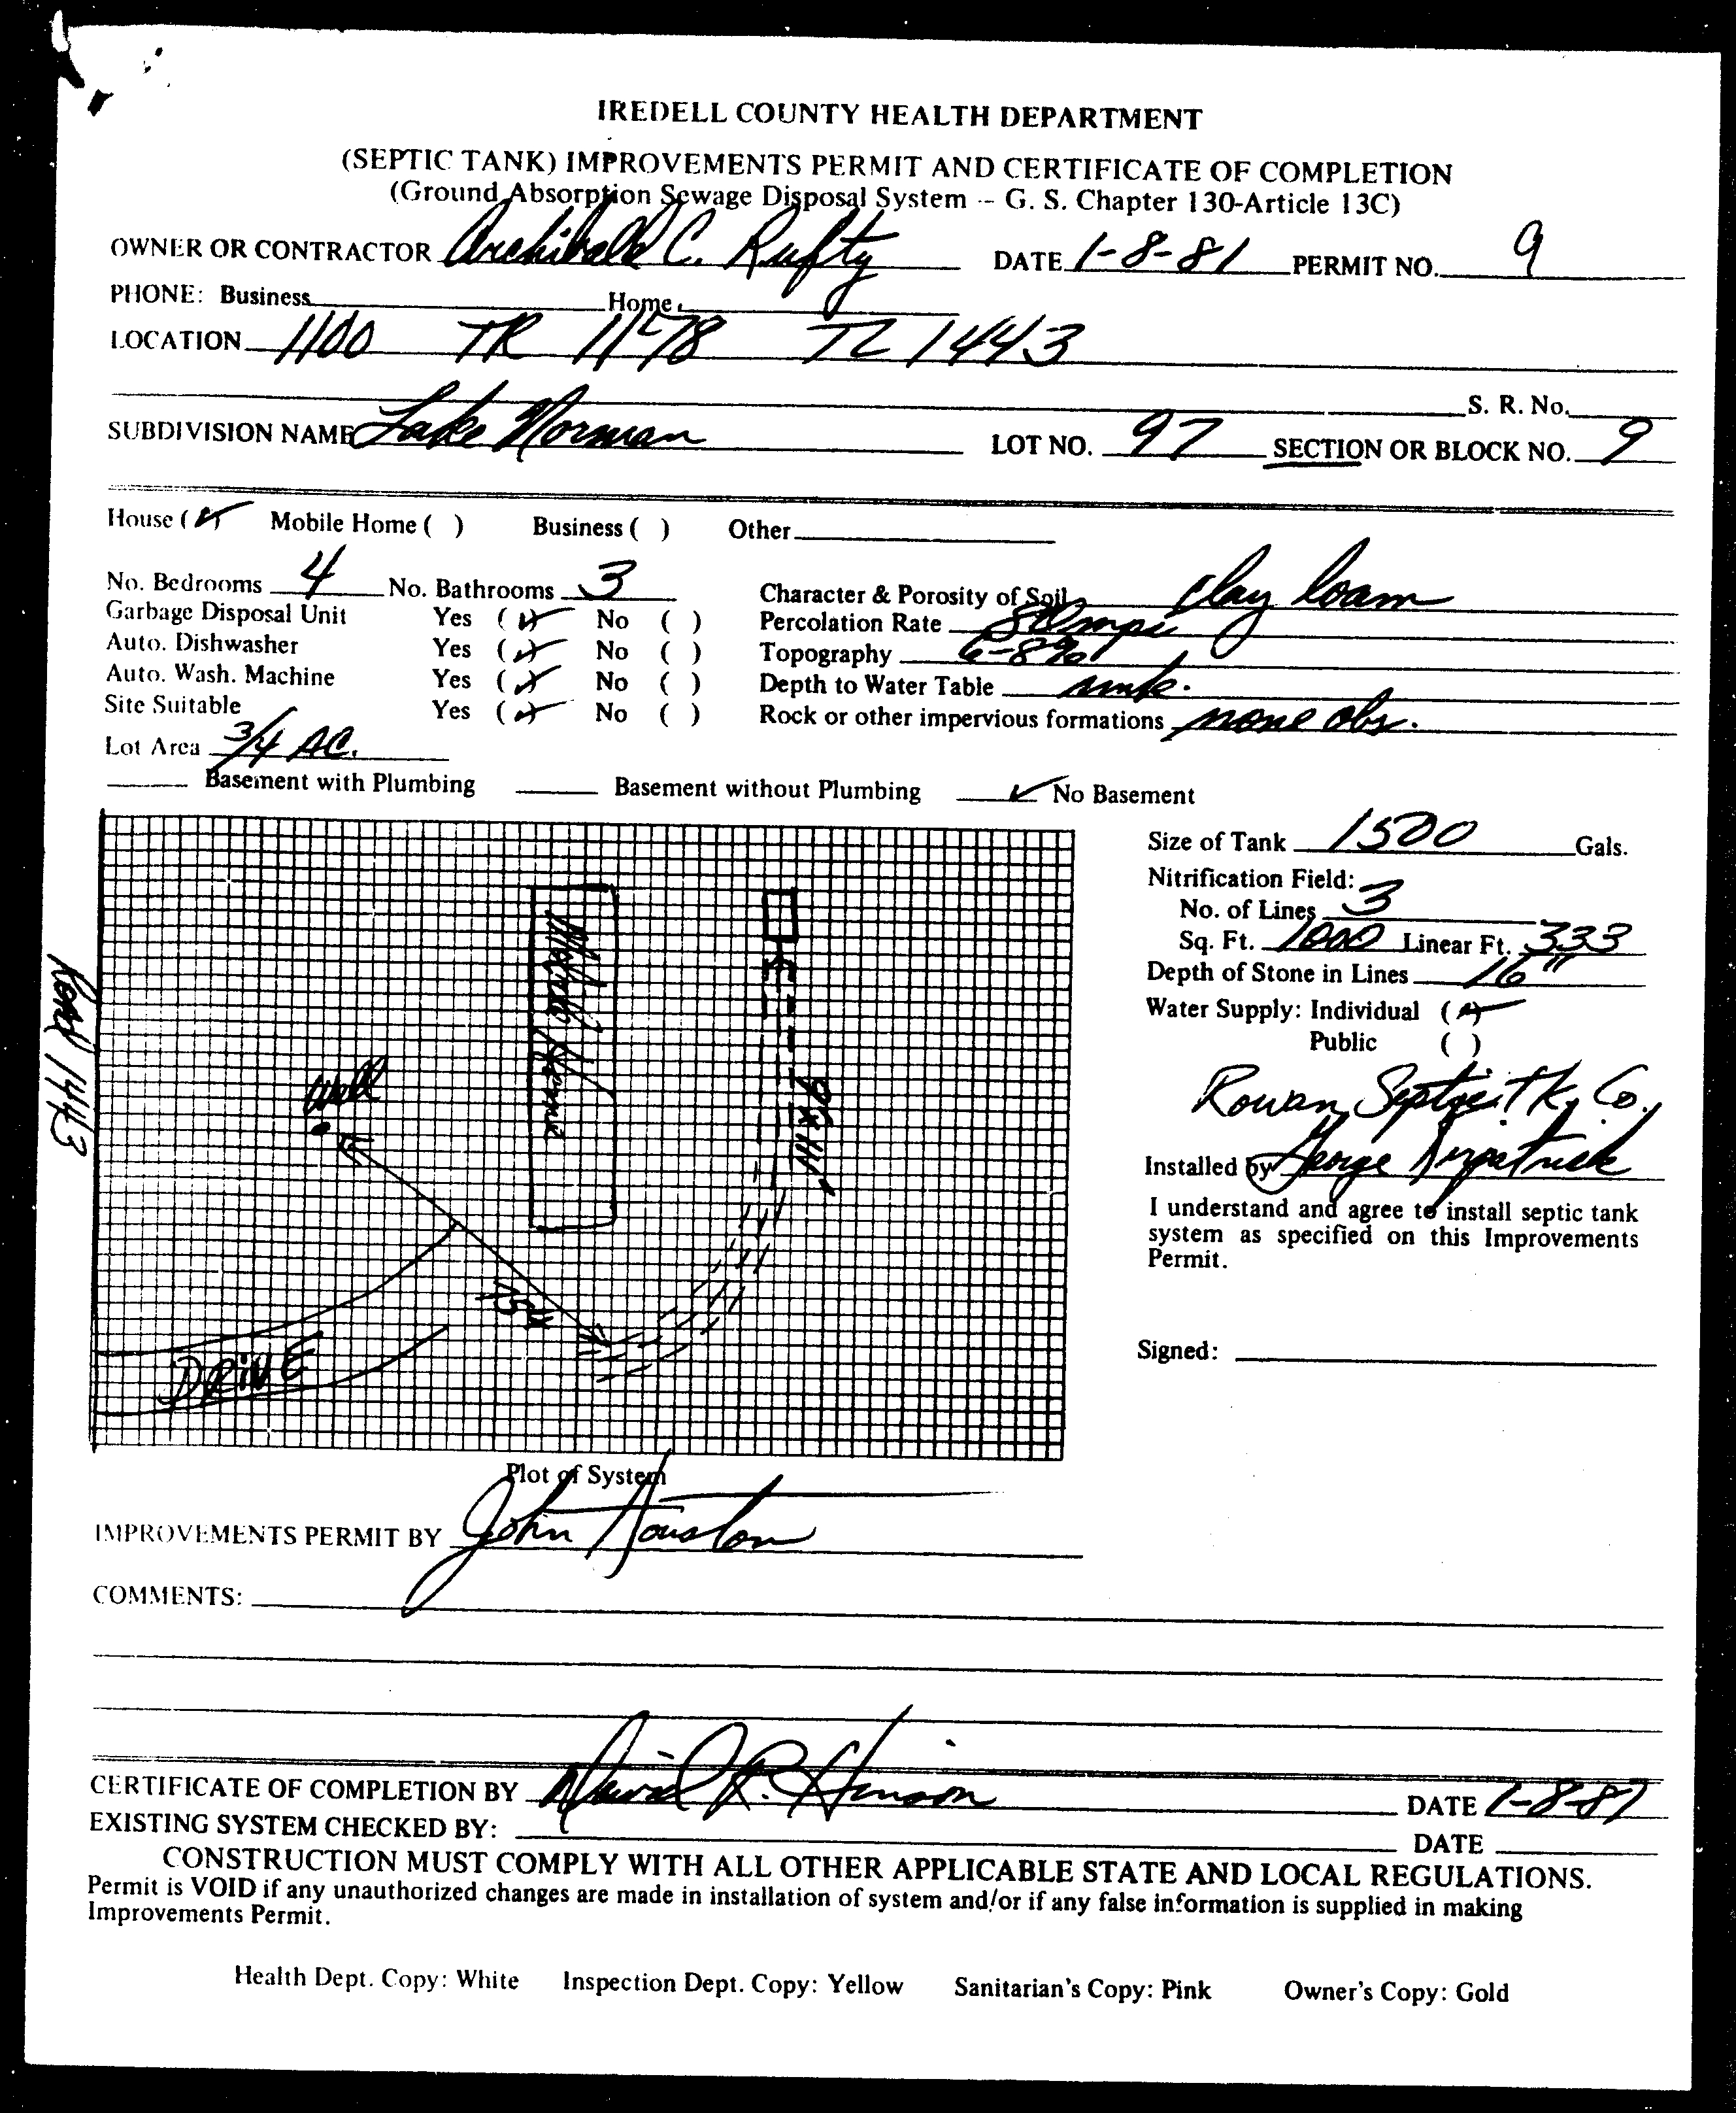 IREDELL COUNTY HEALTH DEPARTMENT
(SEPTIC TANK) IMPROVEMENTS PERMIT AND CERTIFICATE OF COMPLETION
(Ground Absorption Sewage Disposal System -- G. S. Chapter 130-Article 13C)
OWNER OR CONTRACTOR Archibald C. Rufty DATE 1-8-81 PERMIT NO. 9
PHONE: Business Home
LOCATION 1100 TR 1178 TL 1443
S. R. No.
SUBDIVISION NAME Lake Norman LOT NO. 97 SECTION OR BLOCK NO. 9
House ( ) Mobile Home ( ) Business ( ) Other
No. Bedrooms 4 No. Bathrooms 3 Character & Porosity of Soil clay loam
Garbage Disposal Unit Yes ( ) No ( ) Percolation Rate mpi
Auto. Dishwasher Yes ( ) No ( ) Topography 6-8%
Auto. Wash. Machine Yes ( ) No ( ) Depth to Water Table unk.
Site Suitable Yes ( ) No ( ) Rock or other impervious formations none obs.
Lot Area 3/4 AC.
Basement with Plumbing Basement without Plumbing ✓ No Basement
Size of Tank 1500 Gals.
Nitrification Field:
No. of Lines 3
Sq. Ft. 1000 Linear Ft. 333
Depth of Stone in Lines 16"
Water Supply: Individual ( )
Public ( )
Rowan Septic Tk. Co.
Installed by George Kirpatrick
I understand and agree to install septic tank
system as specified on this Improvements
Permit.
Signed:
Road 1443
Well
Mobile Home
DRIVE
Plot of System
IMPROVEMENTS PERMIT BY John Houston
COMMENTS:
CERTIFICATE OF COMPLETION BY David R. Hinson DATE 1-8-87
EXISTING SYSTEM CHECKED BY: DATE
CONSTRUCTION MUST COMPLY WITH ALL OTHER APPLICABLE STATE AND LOCAL REGULATIONS.
Permit is VOID if any unauthorized changes are made in installation of system and/or if any false information is supplied in making
Improvements Permit.
Health Dept. Copy: White Inspection Dept. Copy: Yellow Sanitarian's Copy: Pink Owner's Copy: Gold